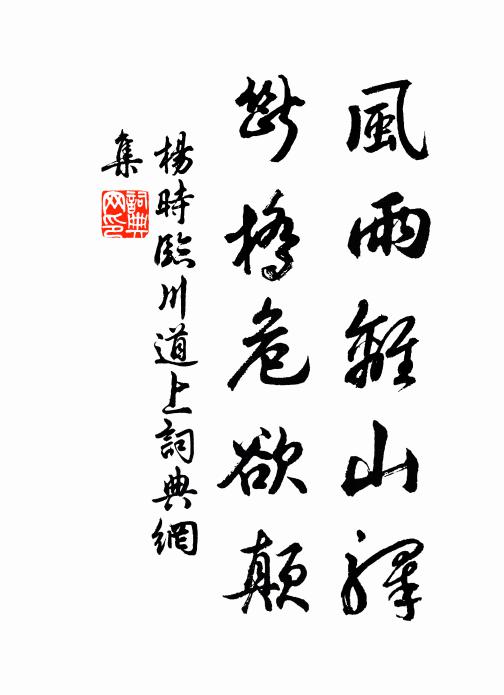 風雨離山驛
斷橋危欲顛
楊時臨川道上詞典網
集
詞典
网印